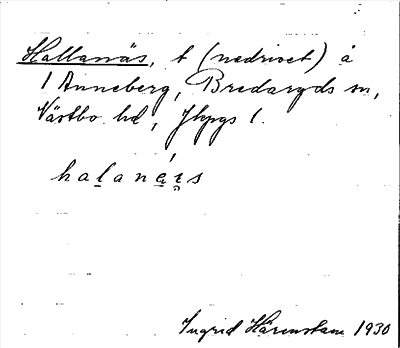 Hallanäs, t (nedrivet) å
1 Anneberg, Bredaryds sn,
Västbo hd, Jkpgs l.
halanés
Ingrid Härenstam 1930